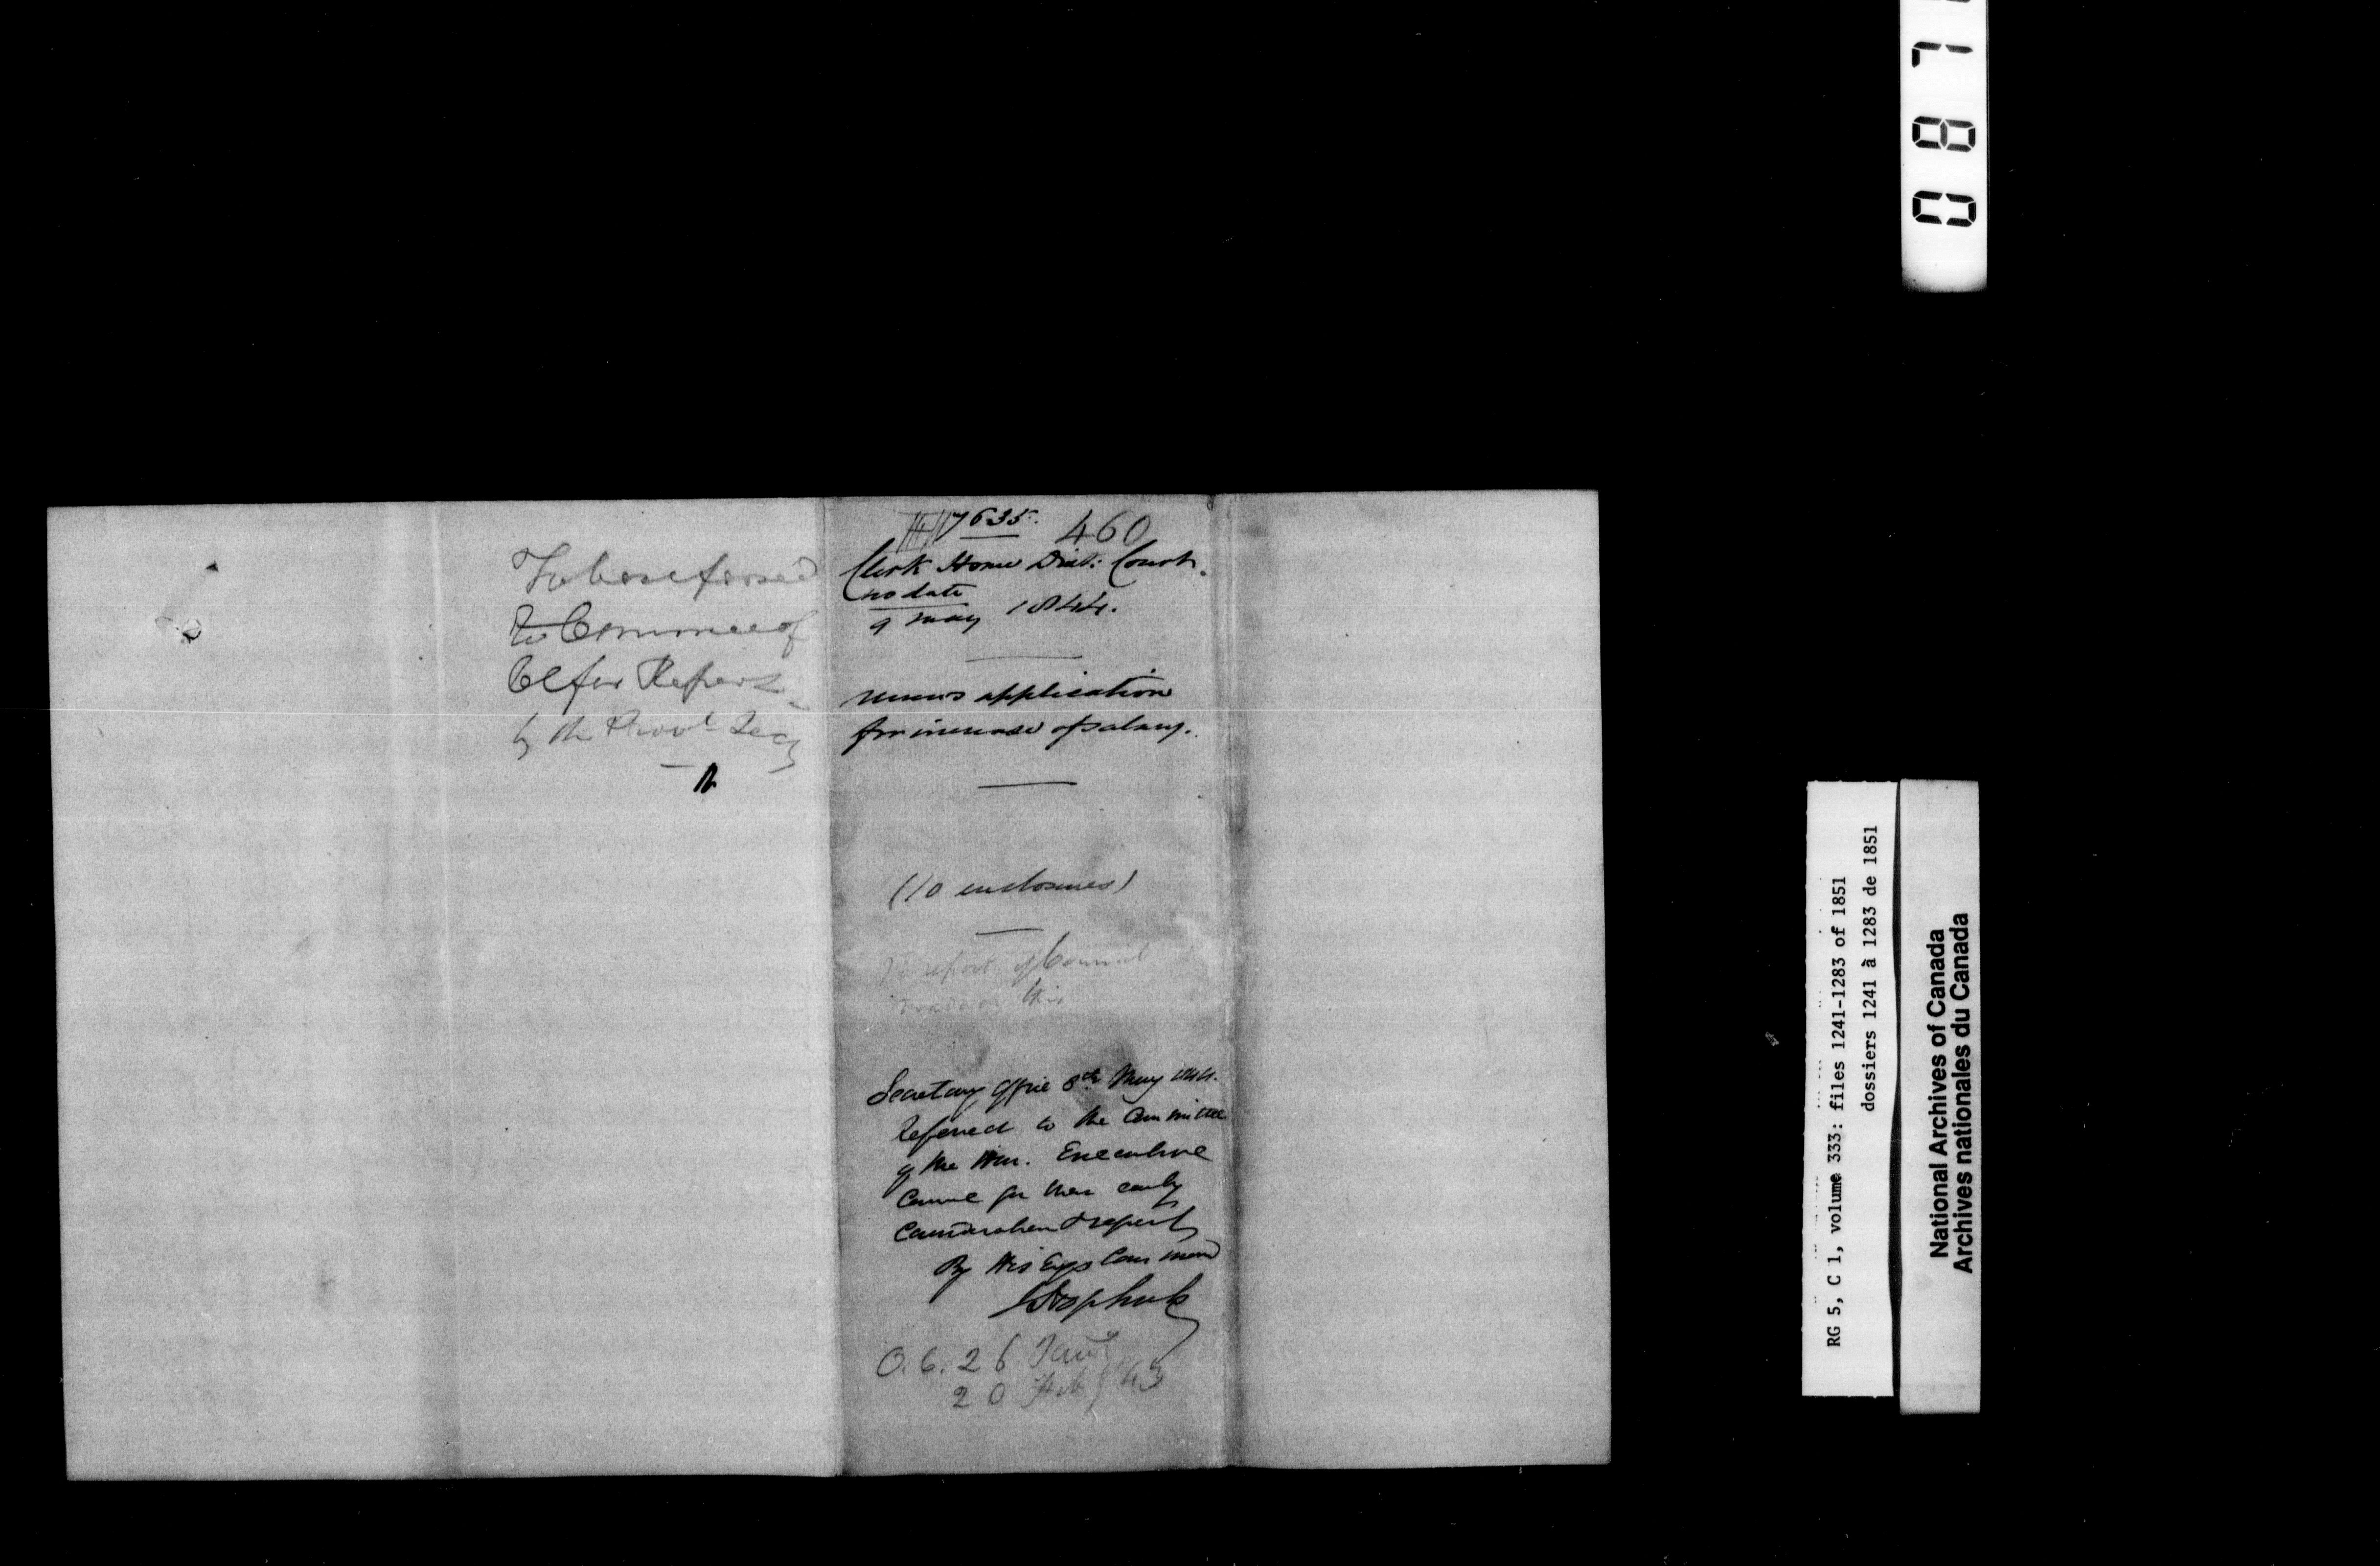 To be referred
to Commee of
Cl for Report
by the Provl Secy
7635. 460
Clerk Home Dist: Court.
no date
9 May 1844.
renews application
for increase of salary.
(10 enclosures)
No report of Council
made on this
Secretary Office 8th May 1844.
Referred to the Committee
of the Hon. Executive
Council for their early
Consideration & report
By His Exys Command
O.C. 26 Jany
20 Feb '43
087
RG 5, C 1, volume 333: files 1241-1283 of 1851
dossiers 1241 à 1283 de 1851
National Archives of Canada
Archives nationales du Canada